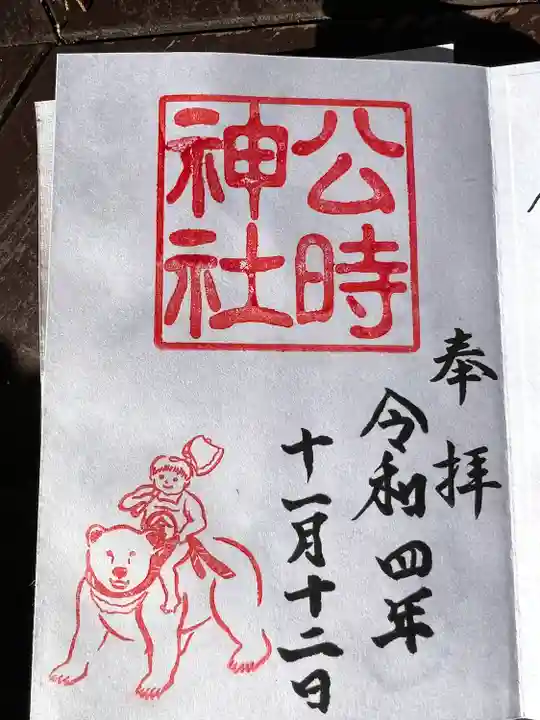 公時
神社
奉拝
令和四年
十一月十二日
金